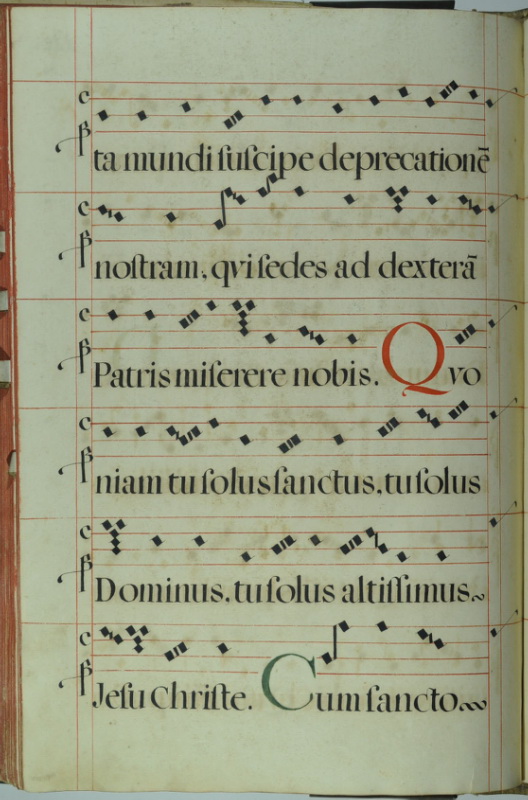 ta mundi ſuſcipe deprecationē
noſtram, qvi ſedes ad dexterā
Patris miſerere nobis. Qvo
niam tu ſolus ſanctus, tu ſolus
Dominus, tu ſolus altiſſimus~
Jeſu Chriſte. Cum ſancto~